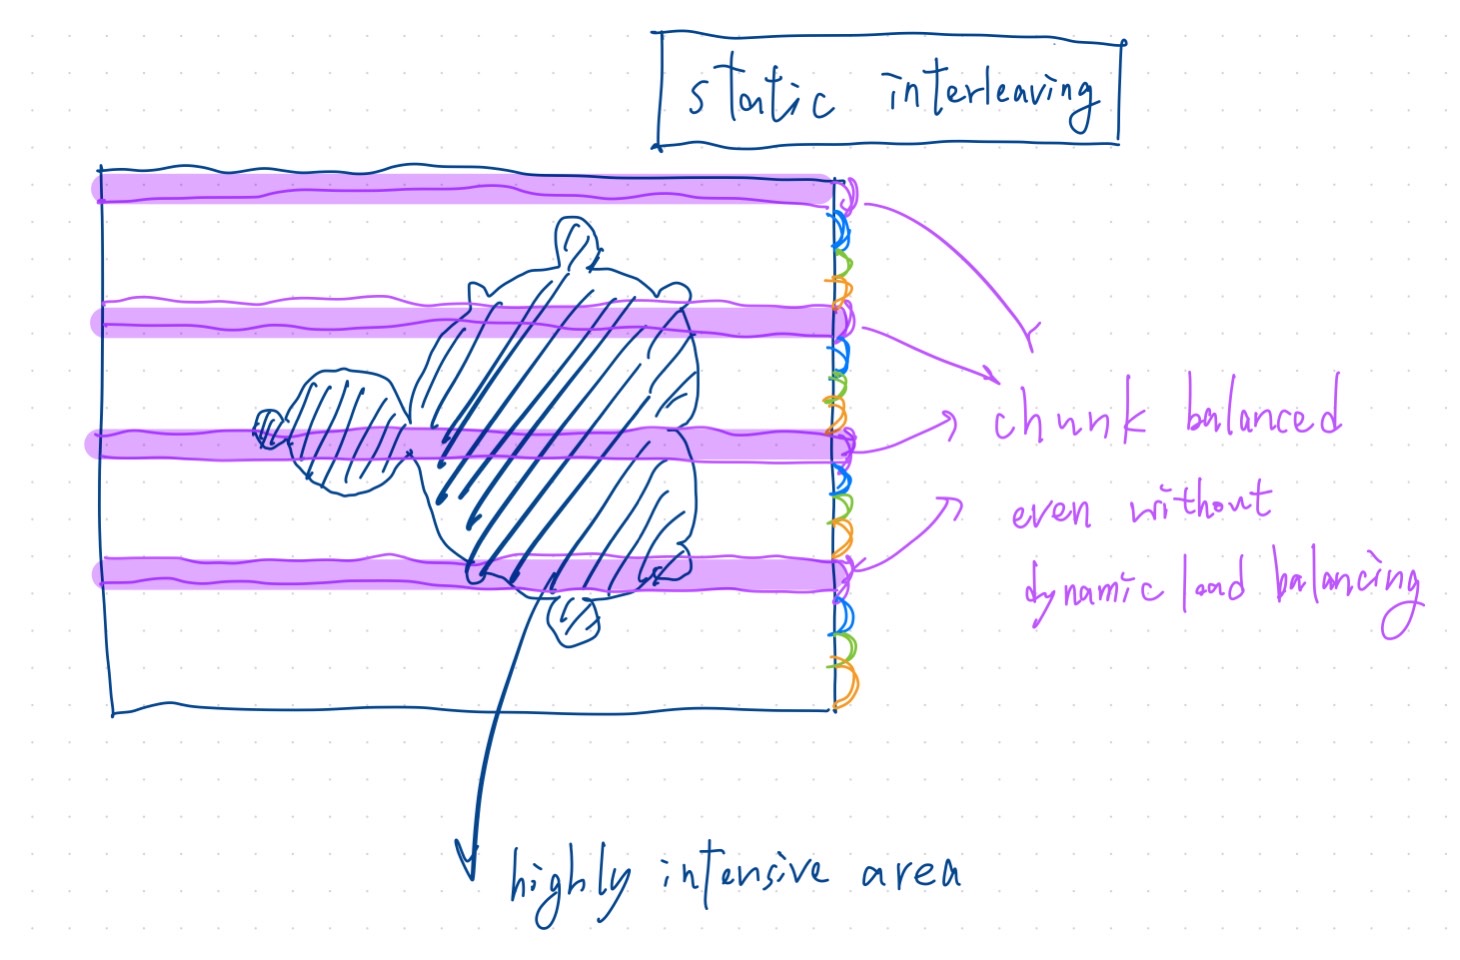 static interleaving
chunk balanced
even without
dynamic load balancing
highly intensive area